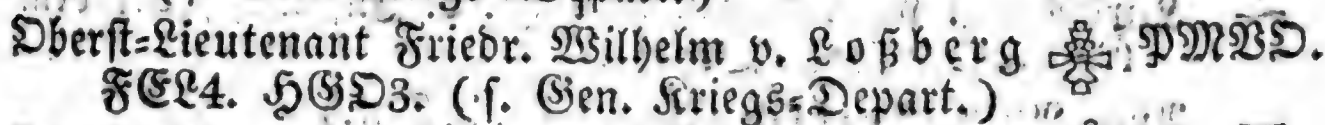 Oberst=Lieutenant Friedr. Wilhelm v. Loßberg PMVO.
FEL4. HGO3. (s. Gen. Kriegs=Depart.)